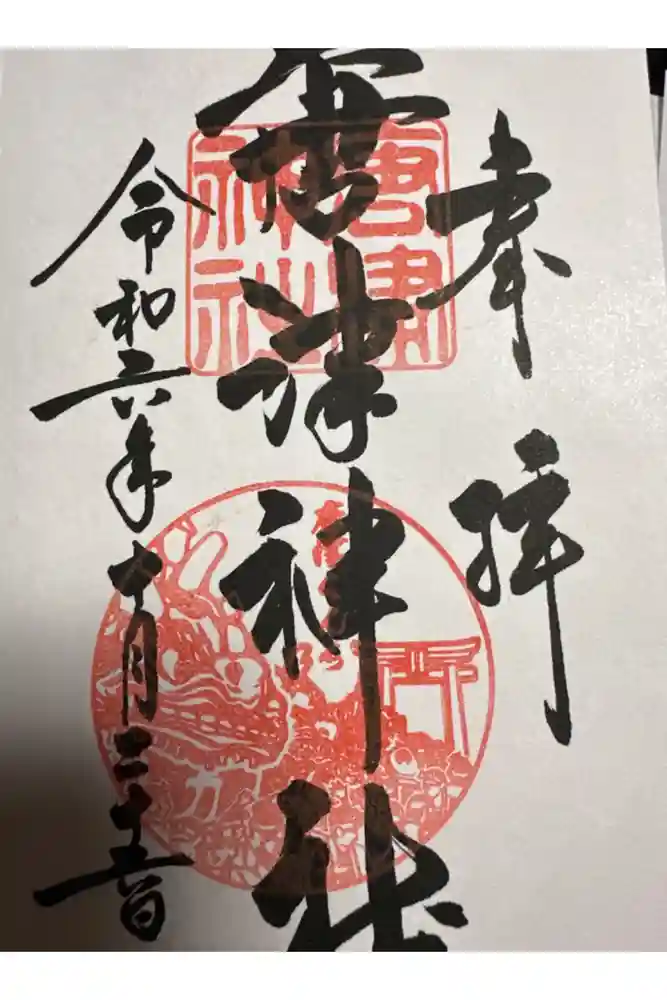 奉拝
唐津神社
唐津神社
令和六年十月二十五日